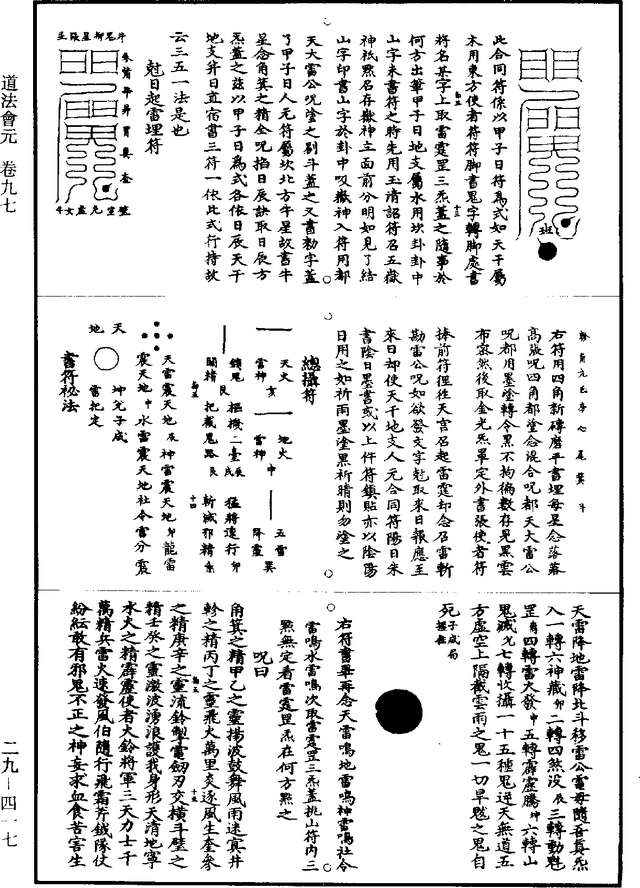 道法會元　卷九七
此合同符係以甲子日符為式如天干屬
木用東方使者符符腳書鬼字轉腳處書
將名某字上取雷霆罡三炁蓋之隨事於
何方出筆甲子日地支屬水用坎卦卦中
山字未書符之時先用玉清詔符召五嶽
神祇㸃名存嶽神立面前分明如見了結
山字印書山字於卦中吸嶽神入符用都
天大雷公呪塗之剔斗蓋之又書勑字蓋
了甲子日人元符屬坎北方牛星故書牛
星念角箕之精全呪掐日辰訣取日辰方
炁蓋之兹以甲子日為式各依日辰天干
地支并日直宿書三符一依此式行持故
云三五一法是也
尅日起雷埋符
井鬼柳星張
參觜畢昴胃婁奎
壁室危虛女牛
軫角亢氐房心尾箕斗
右符用四角新磚磨平書埋每星念落落
高張呪四角都塗念混合呪都天大雷公
呪都用墨塗轉令黑不拘徧數存見黑雲
布密然後取金光炁罩定外書張使者符
捧前符徑往天宫召起雷霆却念召雷斬
勘雷公呪如欲發文字尅取來日報應至
來日却使天干地支人元合同符陽日朱
書陰日墨書或以上件符鎮貼亦以陰陽
日用之如祈雨墨塗黑祈晴則勿塗之
總攝符
天火
雷神
亥
地火
雷神
申
五雷
降靈
巽
鎖鬼
關精
艮
樞機二臺
把截鬼路
猛將速行
斬滅邪精
天雷震天地
神雷震天地
龍雷
震天地
水雷震天地社令雷分震
天
地
坤兌子成
雷把定
書符祕法
天雷降地雷降北斗移雷公電母隨吾真炁
入一轉六神藏卯二轉四煞沒辰三轉動魁
罡四轉雷大發申五轉霹靂騰坤六轉山
鬼滅七轉收攝一十五種鬼逆天無道五
方虛空上隔截雲雨之鬼一切旱魃之鬼自
死
右符書畢再念天雷鳴地雷鳴神雷鳴社令
雷鳴水雷鳴次取雷霆罡三炁蓋挑山符内三
㸃無定看雷霆罡炁在何方㸃之
呪曰
角箕之精甲乙之靈揚波鼓舞風雨速奔井
軫之精丙丁之靈飛火萬里炎逐風生奎參
之精庚辛之靈流鈴掣電劒刃交橫斗壁之
精壬癸之靈激波湧浪護我身形天清地寧
水火之精霹靂使者大鈴將軍三天力士千
萬精兵雷火速發風伯隨行飛霜斧鉞隊仗
紛紜敢有邪鬼不正之神妄求血食苦害生
二九—四一七